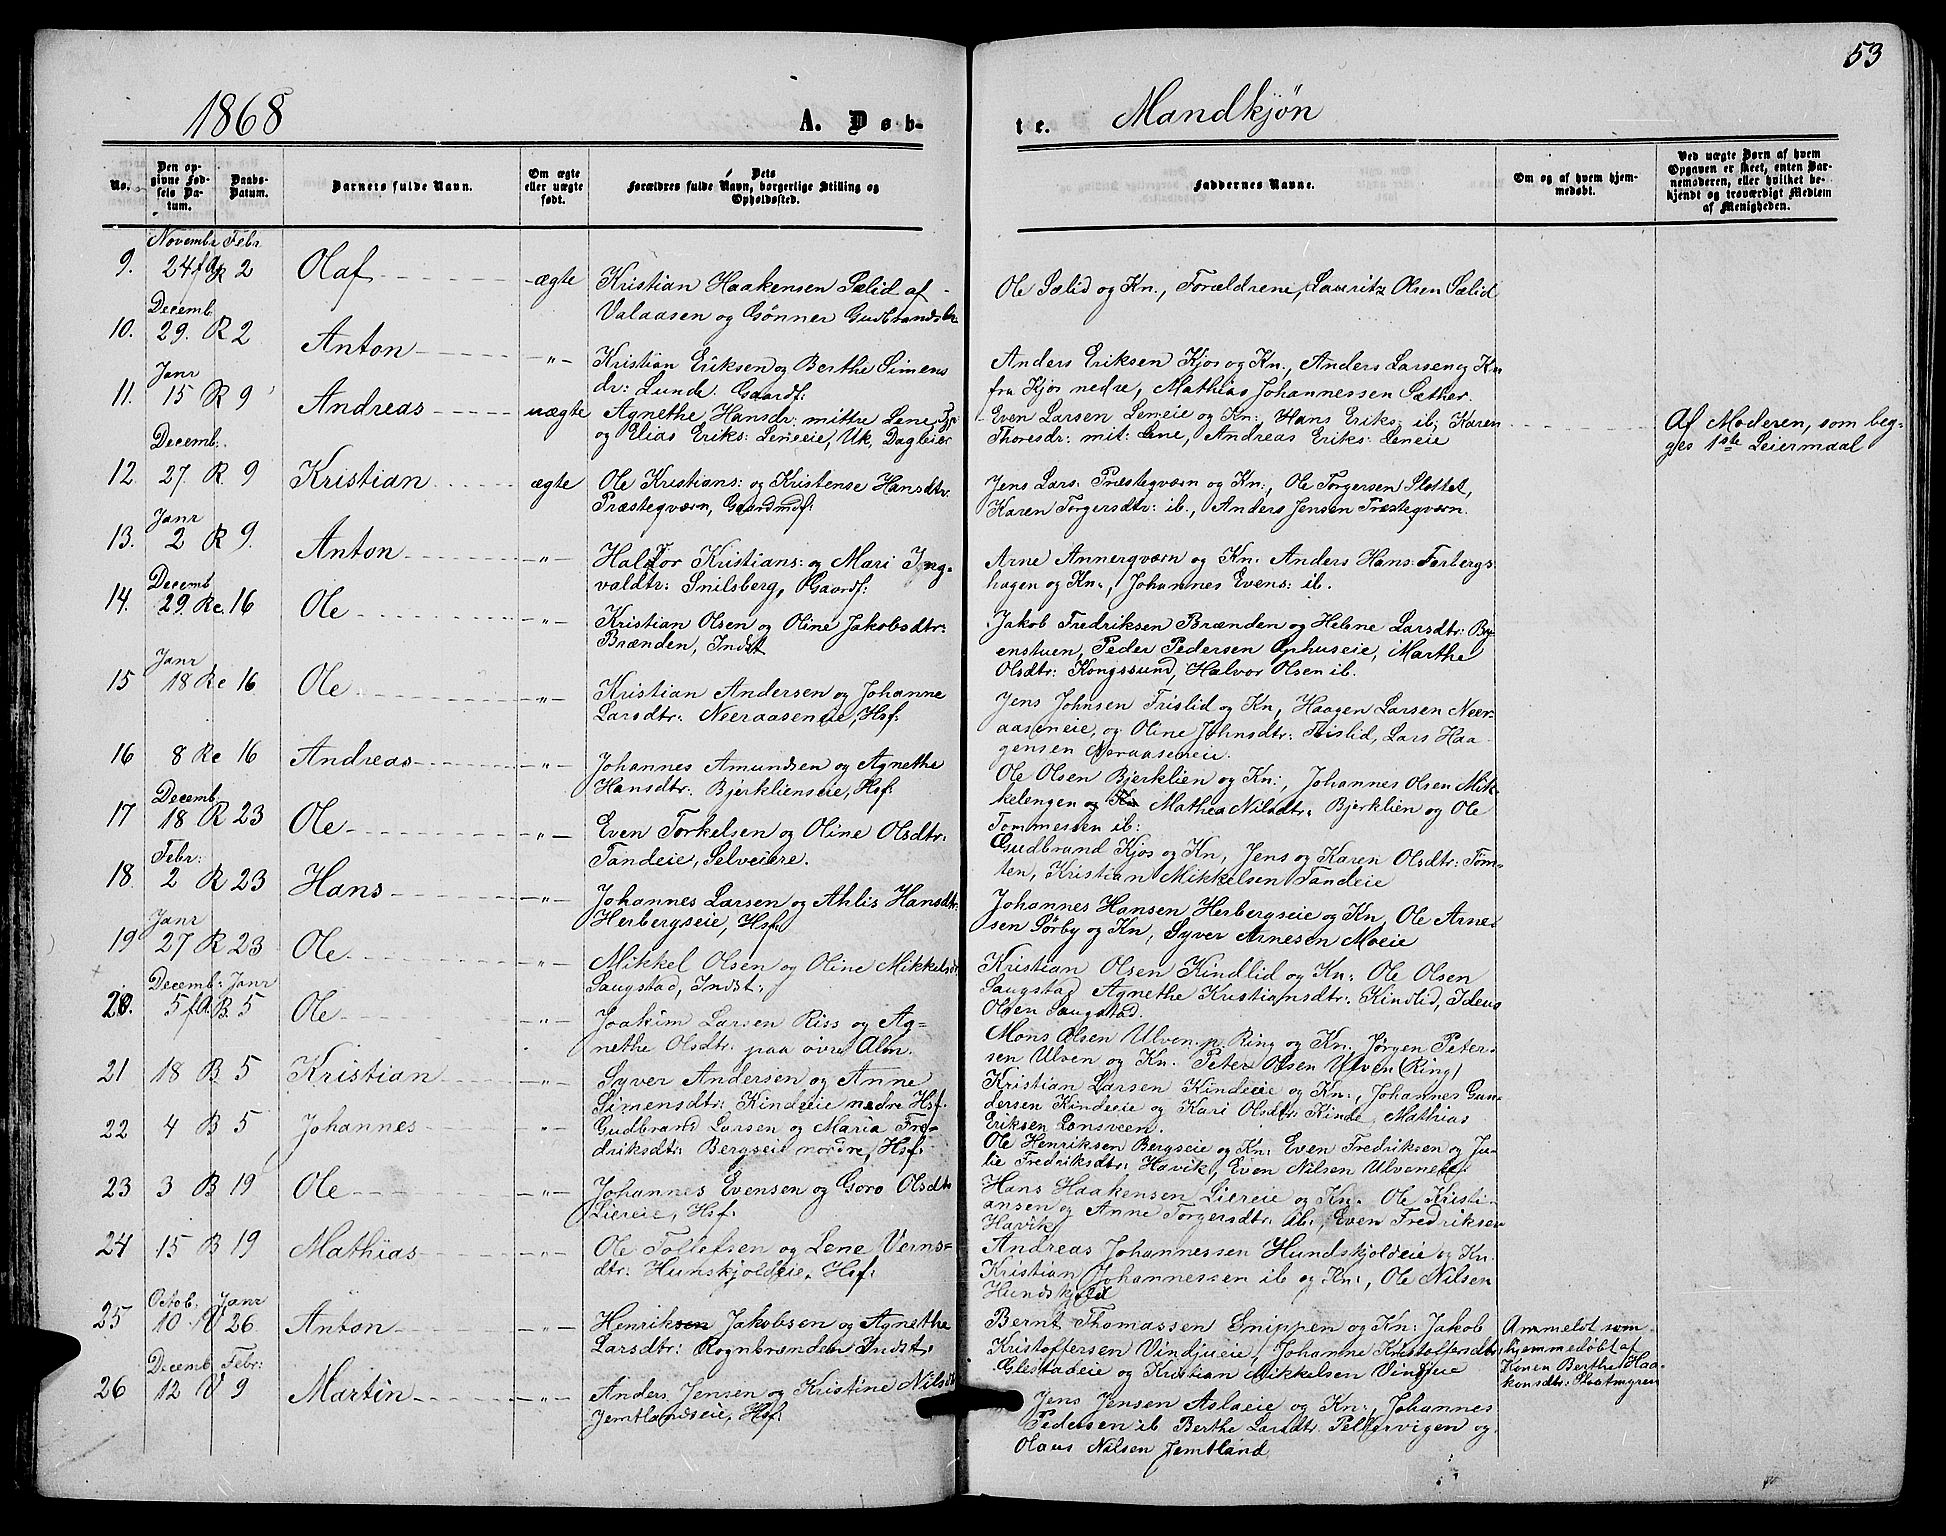 53
1868 A. Døb- te. Mandkjøn
No.
Den opgivne Fødsels Datum.
Daabs-Datum.
Barnets fulde Navn.
Om ægte eller uægte født.
Dets Forældres fulde Navn, borgerlige Stilling og Opholdssted.
Faddernes Navne.
Om og af hvem hjemmedøbt.
Ved uægte Børn af hvem Opgaven er skeet, enten Barnemoderen, eller hvilket bekjendt og troværdigt Medlem af Menigheden.
Novembr Febr
9. 24 R 2 Olaf ægte Kristian Haakensen Sælid af
Valaasen og Gønner Gudbrandsdtr
Ole Sælid og Kn., Forældrene, Lauritz Olsen Sælid
Decemb
10. 29. R 2 Anton -„- Kristian Eriksen og Berthe Simens
dr: Lunde. Gaardf:
Anders Eriksen Kjos og Kn., Anders Larsen og Kn
fra Kjos nedre, Mathias Johannessen Sæther.
Janr
11. 15 R 9 Andreas uægte Agnethe Hansdr: mittre Lene, Tp
og Elias Eriks: Leneeie, Uk, Dagleier
Even Larsen Leneeie og Kn:, Hans Eriks: ib, Karen
Thoresdr: mit: Lene, Andreas Eriks: Leneie
Af Moderen, som beg-
ges 1ste Leiermaal
Decemb:
12 27. R 9 Kristian ægte Ole Kristians: og Kristense Hansdtr.
Præstegværn, Gaardmdf:
Jens Lars: Præstegværn og Kn:, Ole Torgersen Slottet,
Karen Torgersdtr: ib., Anders Jensen Præstegværn.
Janr
13. 2 R 9. Anton -„- Haldor Kristians: og Mari Ing-
valdtr: Snilsberg, Gaardf:
Arne Annergværn og Kn. Anders Hans: Forbergs
hagen og Kn., Johannes Evens: ib.
Decemb
14. 29. Re. 16 Ole -„- Kristian Olsen og Oline Jakobsdtr:
Brænden, Indst
Jakob Fredriksen Brænden og Helene Larsdtr: By-
enstuen, Peder Pedersen Ophuseie, Marthe
Olsdtr: Kongssund, Halvor Olsen ib.
Janr
15 18 Re 16 Ole -„- Kristian Andersen og Johanne
Larsdtr: Neeraaseneie, Hsf:
Jens Johnsen Frislid og Kn, Haagen Larsen Neer-
aaseneie, og Oline Johnsdtr: Frislid, Lars Haa
gensen Neraaseneie.
16 8 Re 16 Andreas -„- Johannes Amundsen og Agnethe
Hansdtr: Bjerklienseie, Hsf:
Ole Olsen Bjerklien og Kn:, Johannes Olsen Mik-
kelengen og Kn Mathea Nilsdtr: Bjerklien og Ole
Tommessen ib:
Decemb
17 18 R 23 Ole -„- Even Torkelsen og Oline Olsdtr:
Tandeie, Selveiere.
Gudbrand Kjos og Kn, Jens og Karen Olsdtr: Tom-
ten, Kristian Mikkelsen Tandeie
Febr:
18. 2 R 23 Hans -„- Johannes Larsen og Ahlis Hansdtr.
Herbergseie, Hsf:
Johannes Hansen Herbergseie og Kn, Ole Arne-
sen Sørby og Kn, Syver Arnesen Moeie
Janr
19 27 R 23 Ole -„- Mikkel Olsen og Oline Mikkelsdr
Saugstad, Indst:
Kristian Olsen Kindlid og Kn: Ole Olsen
Saugstad Agnethe Kristiansdtr: Kindlid, Ideus
Olsen Saugstad.
Decemb: Janr
20. 5 B. 5 Ole -„- Joakim Larsen Riss og Ag-
nethe Olsdtr: paa øvre Alm.
Mons Olsen Ulven p. Ring og Kn: Jørgen Peter-
sen Ulven og Kn. Peter Olsen Ulven (Ring)
21 18 B 5 Kristian -„- Syver Andersen og Anne
Simensdtr: Kindeeie nedre Hsf.
Kristian Larsen Kindeeie og Kn:, Johannes Gun-
dersen Kindeeie og Kari Olsdtr: Kinde, Mathias
Eriksen Lønsveen.
22 4 B 5 Johannes -„- Gudbrand Larsen og Maria Fre-
driksdtr: Bergseie nordre, Hsf:
Ole Henriksen Bergseie og Kn: Even Fredriksen og Ju-
lie Fredriksdtr: Havik, Even Nilsen Ulveneie:
23 3 B 19 Ole -„- Johannes Evensen og Goro Olsdtr
Liereie, Hsf:
Hans Haakensen Liereie og Kn. Ole Kristi-
ansen og Anne Torgersdtr: ib:, Even Fredriksen
Havik
24 15 B 19 Mathias -„- Ole Tollefsen og Lene Verns-
dtr: Hunskjoldeie. Hsf:
Andreas Johannessen Hundskjoldeie og Kn.
Kristian Johannessen ib og Kn:, Ole Nilsen
Hundskjold
Octob. Janr
25 10 V 26 Anton -„- Henriksen Jakobsen og Agnethe
Larsdtr: Rognbrænden Indst:
Bernt Thomassen Snippen og Kn: Jakob
Kristoffersen Vindjueie, Johanne Kristoffersdtr
Glestadeie og Kristian Mikkelsen Vindjue
Anmeldt som
hjemmedøbt af
Konen Berthe Haa-
konsdtr: Slaatmyren
Decemb Febr:
26 12 V 9 Martin -„- Anders Jensen og Kristine Nilsdtr
Jemtlandseie, Hsf:
Jens Jensen Aslaeie og Kn:, Johannes
Pedersen ib Berthe Larsdtr. Pelkervigen og
Olaus Nilsen Jemtland